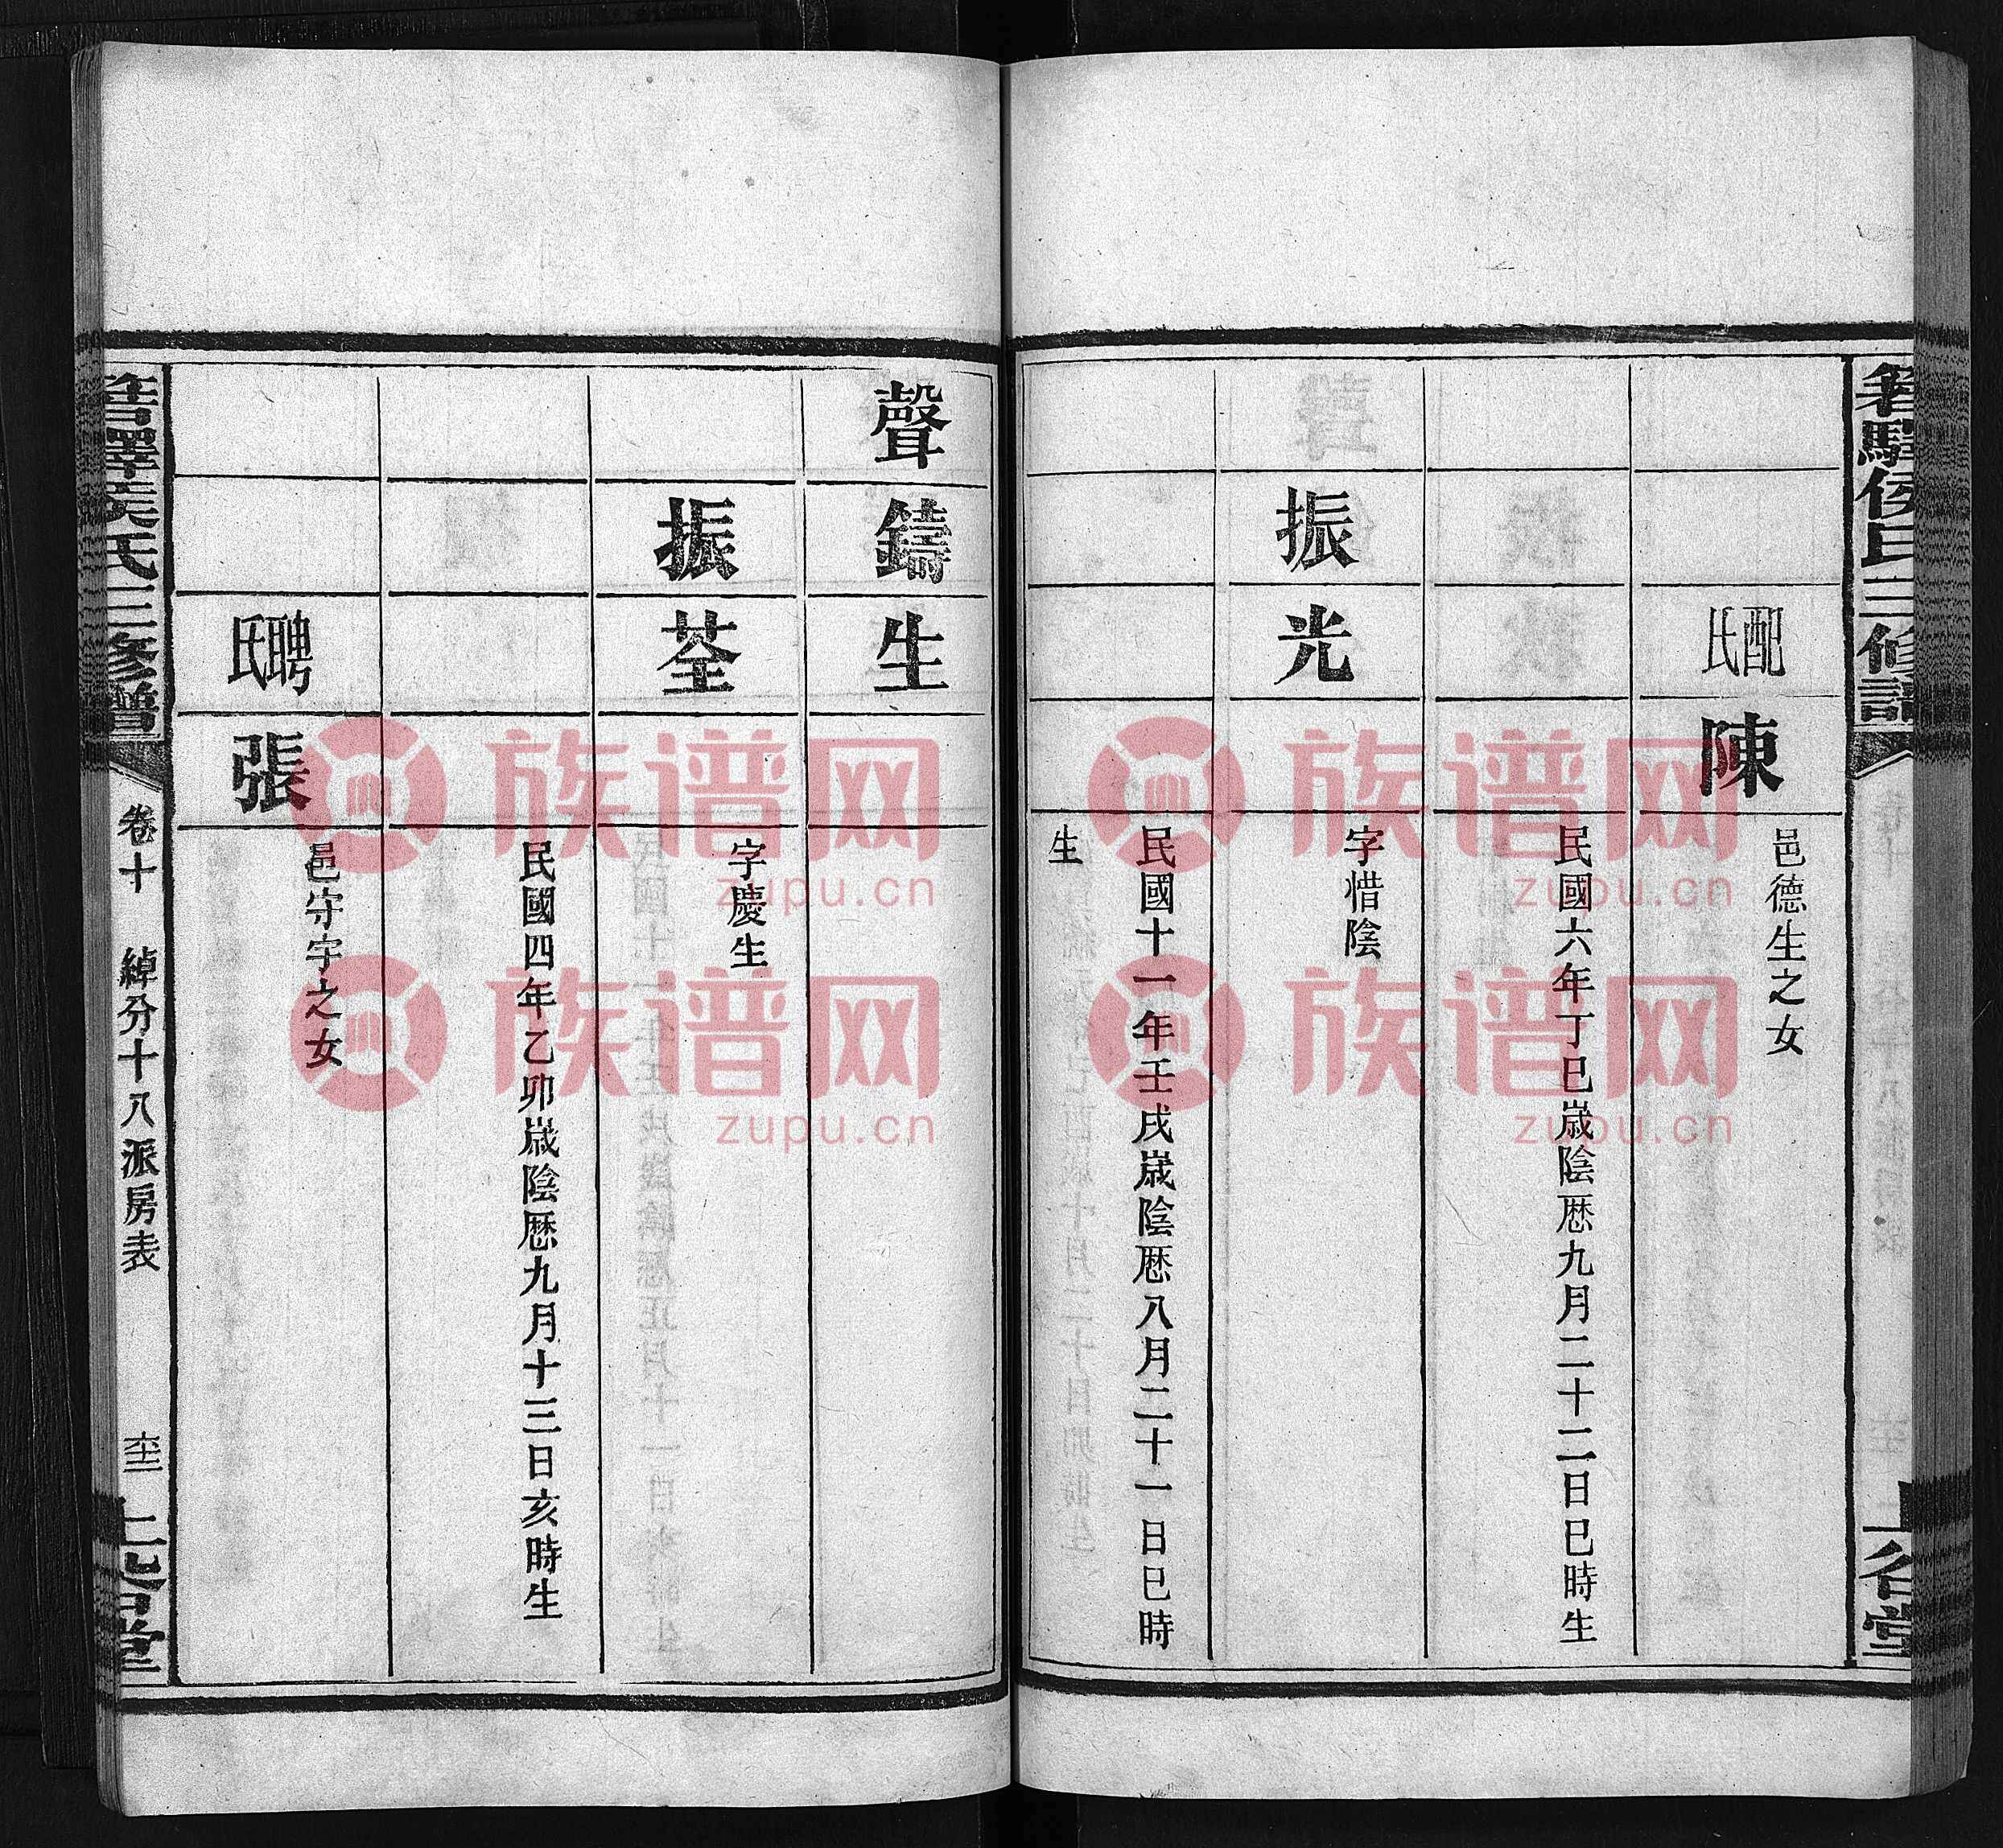 配氏
陳
邑德生之女
民國六年丁巳歲陰厯九月二十二日巳時生
振
光
字惜陰
民國十一年壬戌歲陰厯八月二十一日巳時
生
聲
鑄
生
振
荃
字慶生
民國四年乙卯歲陰厯九月十三日亥時生
聘氏
張
邑守宇之女
氏三修譜
卷十
綽分十八派房表
堂
族谱网
zupu.cn
族谱网
zupu.cn
族谱网
zupu.cn
族谱网
zupu.cn